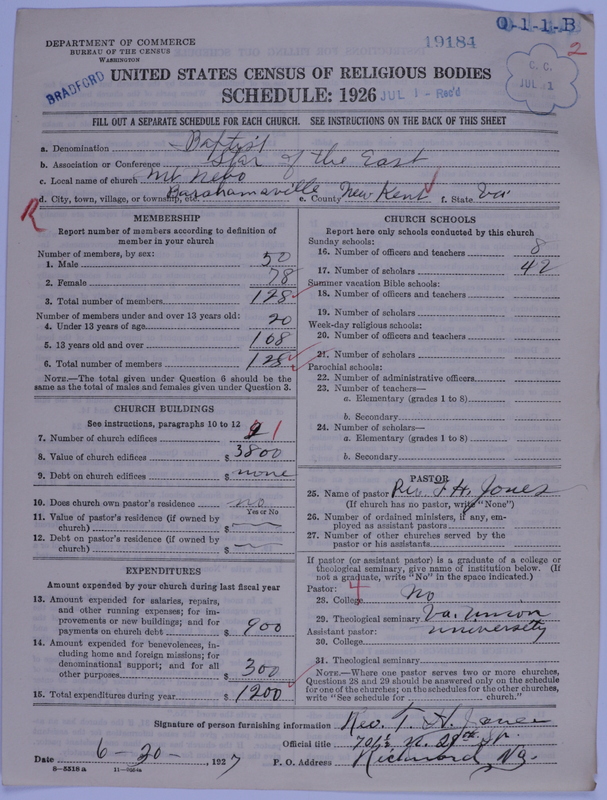 Q-1-1-B
DEPARTMENT OF COMMERCE
BUREAU OF THE CENSUS
WASHINGTON
19184
2
BRADFORD
UNITED STATES CENSUS OF RELIGIOUS BODIES
C. C.
JUL 21
SCHEDULE: 1926
JUL 1 - Rec'd
FILL OUT A SEPARATE SCHEDULE FOR EACH CHURCH. SEE INSTRUCTIONS ON THE BACK OF THIS SHEET
a. Denomination Baptist
b. Association or Conference Star of the East
c. Local name of church Mt Nebo
d. City, town, village, or township, etc. Barhamsville e. County New Kent f. State Va
R
MEMBERSHIP
Report number of members according to definition of
member in your church
Number of members, by sex:
1. Male 50
2. Female 78
3. Total number of members 128
Number of members under and over 13 years old:
4. Under 13 years of age 20
5. 13 years old and over 108
6. Total number of members 128
NOTE.—The total given under Question 6 should be the
same as the total of males and females given under Question 3.
CHURCH BUILDINGS
See instructions, paragraphs 10 to 12
7. Number of church edifices 1
8. Value of church edifices $ 3800
9. Debt on church edifices $ none
10. Does church own pastor's residence no
Yes or No
11. Value of pastor's residence (if owned by
church) $
12. Debt on pastor's residence (if owned by
church) $
EXPENDITURES
Amount expended by your church during last fiscal year
13. Amount expended for salaries, repairs,
and other running expenses; for im-
provements or new buildings; and for
payments on church debt $ 900
14. Amount expended for benevolences, in-
cluding home and foreign missions; for
denominational support; and for all
other purposes $ 300
15. Total expenditures during year $ 1200
CHURCH SCHOOLS
Report here only schools conducted by this church
Sunday schools:
16. Number of officers and teachers 8
17. Number of scholars 42
Summer vacation Bible schools:
18. Number of officers and teachers
19. Number of scholars
Week-day religious schools:
20. Number of officers and teachers
21. Number of scholars
Parochial schools:
22. Number of administrative officers
23. Number of teachers—
a. Elementary (grades 1 to 8)
b. Secondary
24. Number of scholars—
a. Elementary (grades 1 to 8)
b. Secondary
PASTOR
25. Name of pastor Rev. T. H. Jones
(If church has no pastor, write "None")
26. Number of ordained ministers, if any, em-
ployed as assistant pastors
27. Number of other churches served by the
pastor or his assistants
If pastor (or assistant pastor) is a graduate of a college or
theological seminary, give name of institution below. (If
not a graduate, write "No" in the space indicated.)
Pastor: 4
28. College No
29. Theological seminary Va. Union
Assistant pastor: University
30. College
31. Theological seminary
NOTE.—Where one pastor serves two or more churches,
Questions 28 and 29 should be answered only on the schedule
for one of the churches; on the schedules for the other churches,
write "See schedule for church."
Signature of person furnishing information Rev. T. H. Jones
Official title N. 29th St.
Date 6-20-, 1927 P. O. Address Richmond, Va.
8-5518 a